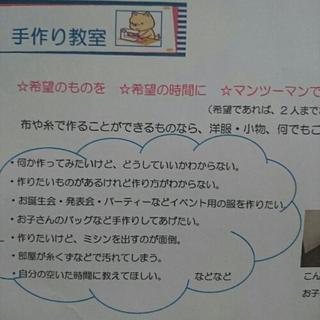 手作り教室
☆希望のものを ☆希望の時間に ☆マンツーマンで
（希望であれば、２人まで
布や糸で作ることができるものなら、洋服・小物、何でもご
・何か作ってみたいけど、どうしていいかわからない。
・作りたいものがあるけれど作り方がわからない。
・お誕生会・発表会・パーティーなどイベント用の服を作りたい。
・お子さんのバッグなど手作りしてあげたい。
・作りたいけど、ミシンを出すのが面倒。
・部屋が糸くずなどで汚れてしまう。
・自分の空いた時間に教えてほしい。 などなど
こん
お子